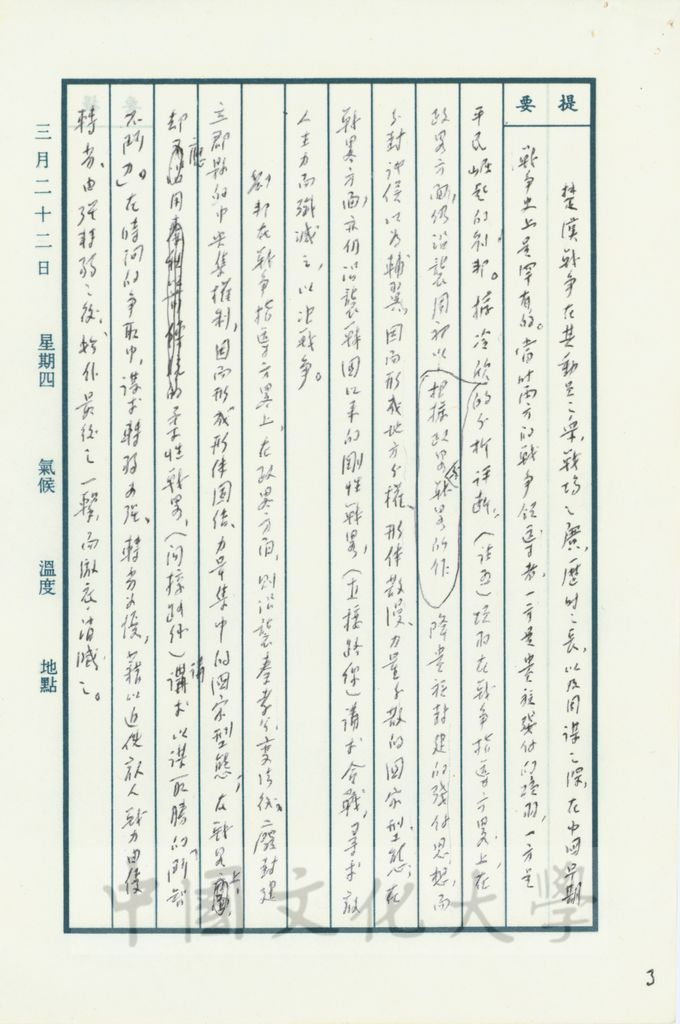 提要
楚漢戰爭在其動員之眾，戰場之廣，歷時之長，以及用謀之深，在中國早期
戰爭史上是罕有的。當時兩方的戰爭領導者，一方是貴族舉行的項羽，一方是
平民崛起的劉邦。據冷欣的分析評斷，項羽在戰爭指導方畧上，在
政畧方面，仍沿襲周初以 把握政畧戰畧的作 降貴族封建的殘餘思想，而
分封諸侯以為輔翼，因而形成地方分權、形体散漫、力量分散的國家型態，在
戰畧方面，亦仍沿襲戰國以來的剛性戰畧，（直接路線）講求會戰，尋求敵
人主力而殲滅之，以決戰爭。
劉邦在戰爭指導方畧上，在政畧方面，則沿襲秦孝公變法後，廢封建
立郡縣的中央集權制，因而形成形体團結、力量集中的國家型態，在戰畧上，
却應用 的柔性戰畧，（間接路線）講求以謀取勝的「鬥智
不鬥力」。在時間的爭取中，謀求轉弱為強、轉劣為優，藉以迫使敵人戰力由優
轉劣，由強轉弱之後，始作最後之一擊，而徹底消滅之。
三月二十二日 星期四 氣候 溫度 地點
中國文化大學
3